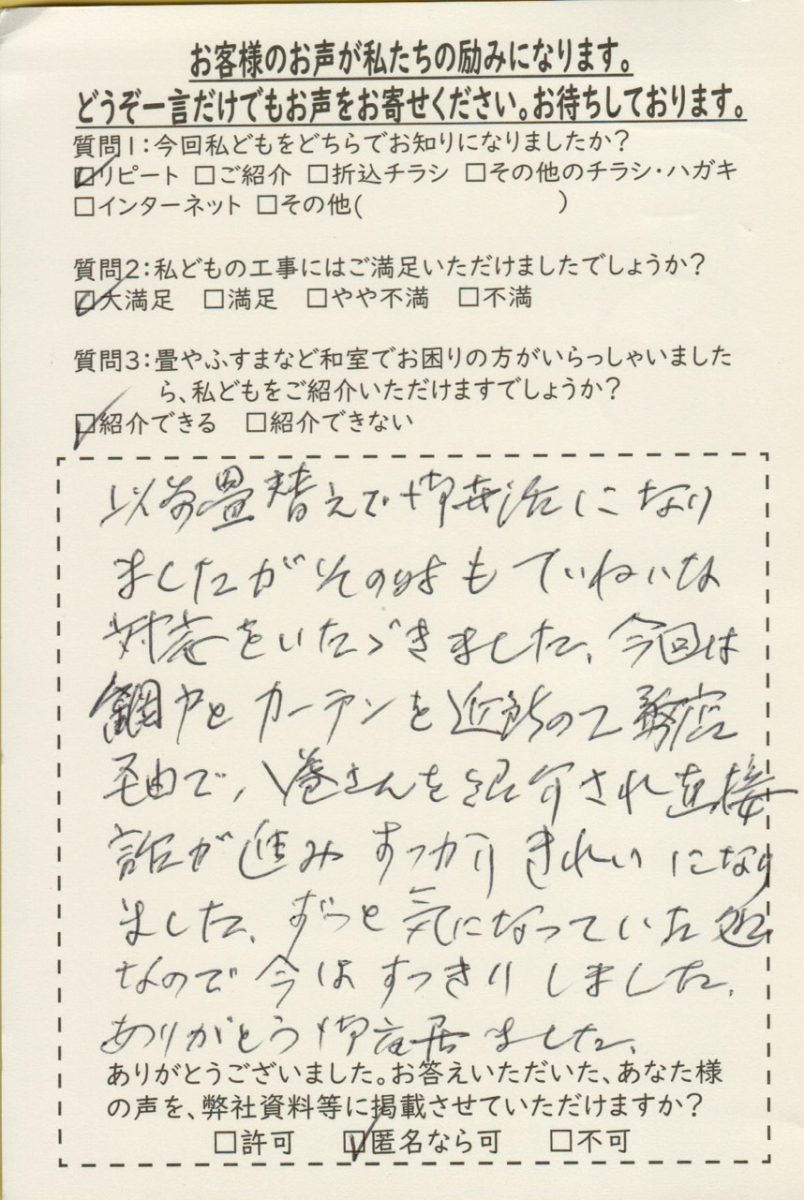 お客様のお声が私たちの励みになります。
どうぞ一言だけでもお声をお寄せください。お待ちしております。
質問1:今回私どもをどちらでお知りになりましたか?
☑リピート □ご紹介 □折込チラシ □その他のチラシ・ハガキ
□インターネット □その他( )
質問2:私どもの工事にはご満足いただけましたでしょうか?
☑大満足 □満足 □やや不満 □不満
質問3:畳やふすまなど和室でお困りの方がいらっしゃいました
ら、私どもをご紹介いただけますでしょうか?
☑紹介できる □紹介できない
以前畳替えで御世話になり
ましたがその時もていねいな
対応をいただきました、今回は
網戸とカーテンを近所の工務店
経由で、八巻さんを紹介され直接
話が進みすっかりきれいになり
ました、ずっと気になっていた処
なので今はすっきりしました、
ありがとう御座居ました、
ありがとうございました。お答えいただいた、あなた様
の声を、弊社資料等に掲載させていただけますか?
□許可 ☑匿名なら可 □不可